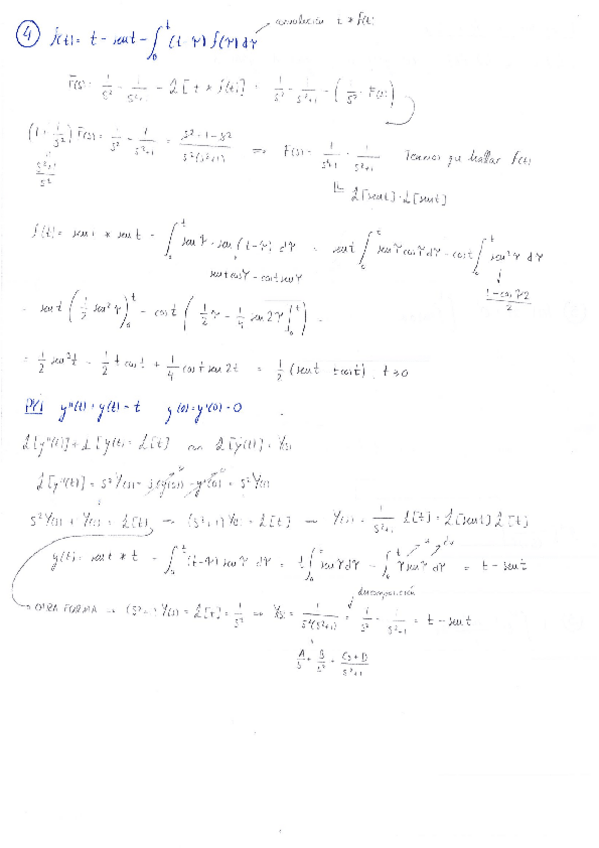 ④ f(t) = t - sent - ∫₀ᵗ (t-τ) f(τ) dτ convolución t * f(t)
F(s) = 1/s² - 1/(s²+1) - L[t * f(t)] = 1/s² - 1/(s²+1) - (1/s² · F(s))
(1 + 1/s²) F(s) = 1/s² - 1/(s²+1) = (s²+1-s²)/(s²(s²+1)) ⟹ F(s) = 1/(s²+1) · 1/(s²+1) Tenemos que hallar f(t)
(s²+1)/s²
L[sent] · L[sent]
f(t) = sent * sent = ∫₀ᵗ senτ · sen(t-τ) dτ = sent ∫₀ᵗ senτ cosτ dτ - cost ∫₀ᵗ sen²τ dτ
sent cosτ - cost senτ
(1-cos τ2)/2
= sent (1/2 sen²τ)₀ᵗ - cost (1/2 τ - 1/4 sen2τ |₀ᵗ) =
= 1/2 sen³t - 1/2 t cost + 1/4 cost sen 2t = 1/2 (sent - t cost), t≥0
PVI y''(t) + y(t) = t y(0) = y'(0) = 0
L[y''(t)] + L[y(t)] = L[t] L[y(t)] = Y(s)
L[y''(t)] = s² Y(s) - s y(0) - y'(0) = s² Y(s)
s² Y(s) + Y(s) = L[t] → (s²+1) Y(s) = L[t] → Y(s) = 1/(s²+1) L[t] = L[sent] L[t]
y(t) = sent * t = ∫₀ᵗ (t-τ) senτ dτ = t ∫₀ᵗ senτ dτ - ∫₀ᵗ τ senτ dτ = t - sent
descomposición
OTRA FORMA → (s²+1) Y(s) = L[t] = 1/s² ⟹ Y(s) = 1/(s²(s²+1)) = 1/s² - 1/(s²+1) = t - sent
A/s + B/s² + (Cs+D)/(s²+1)